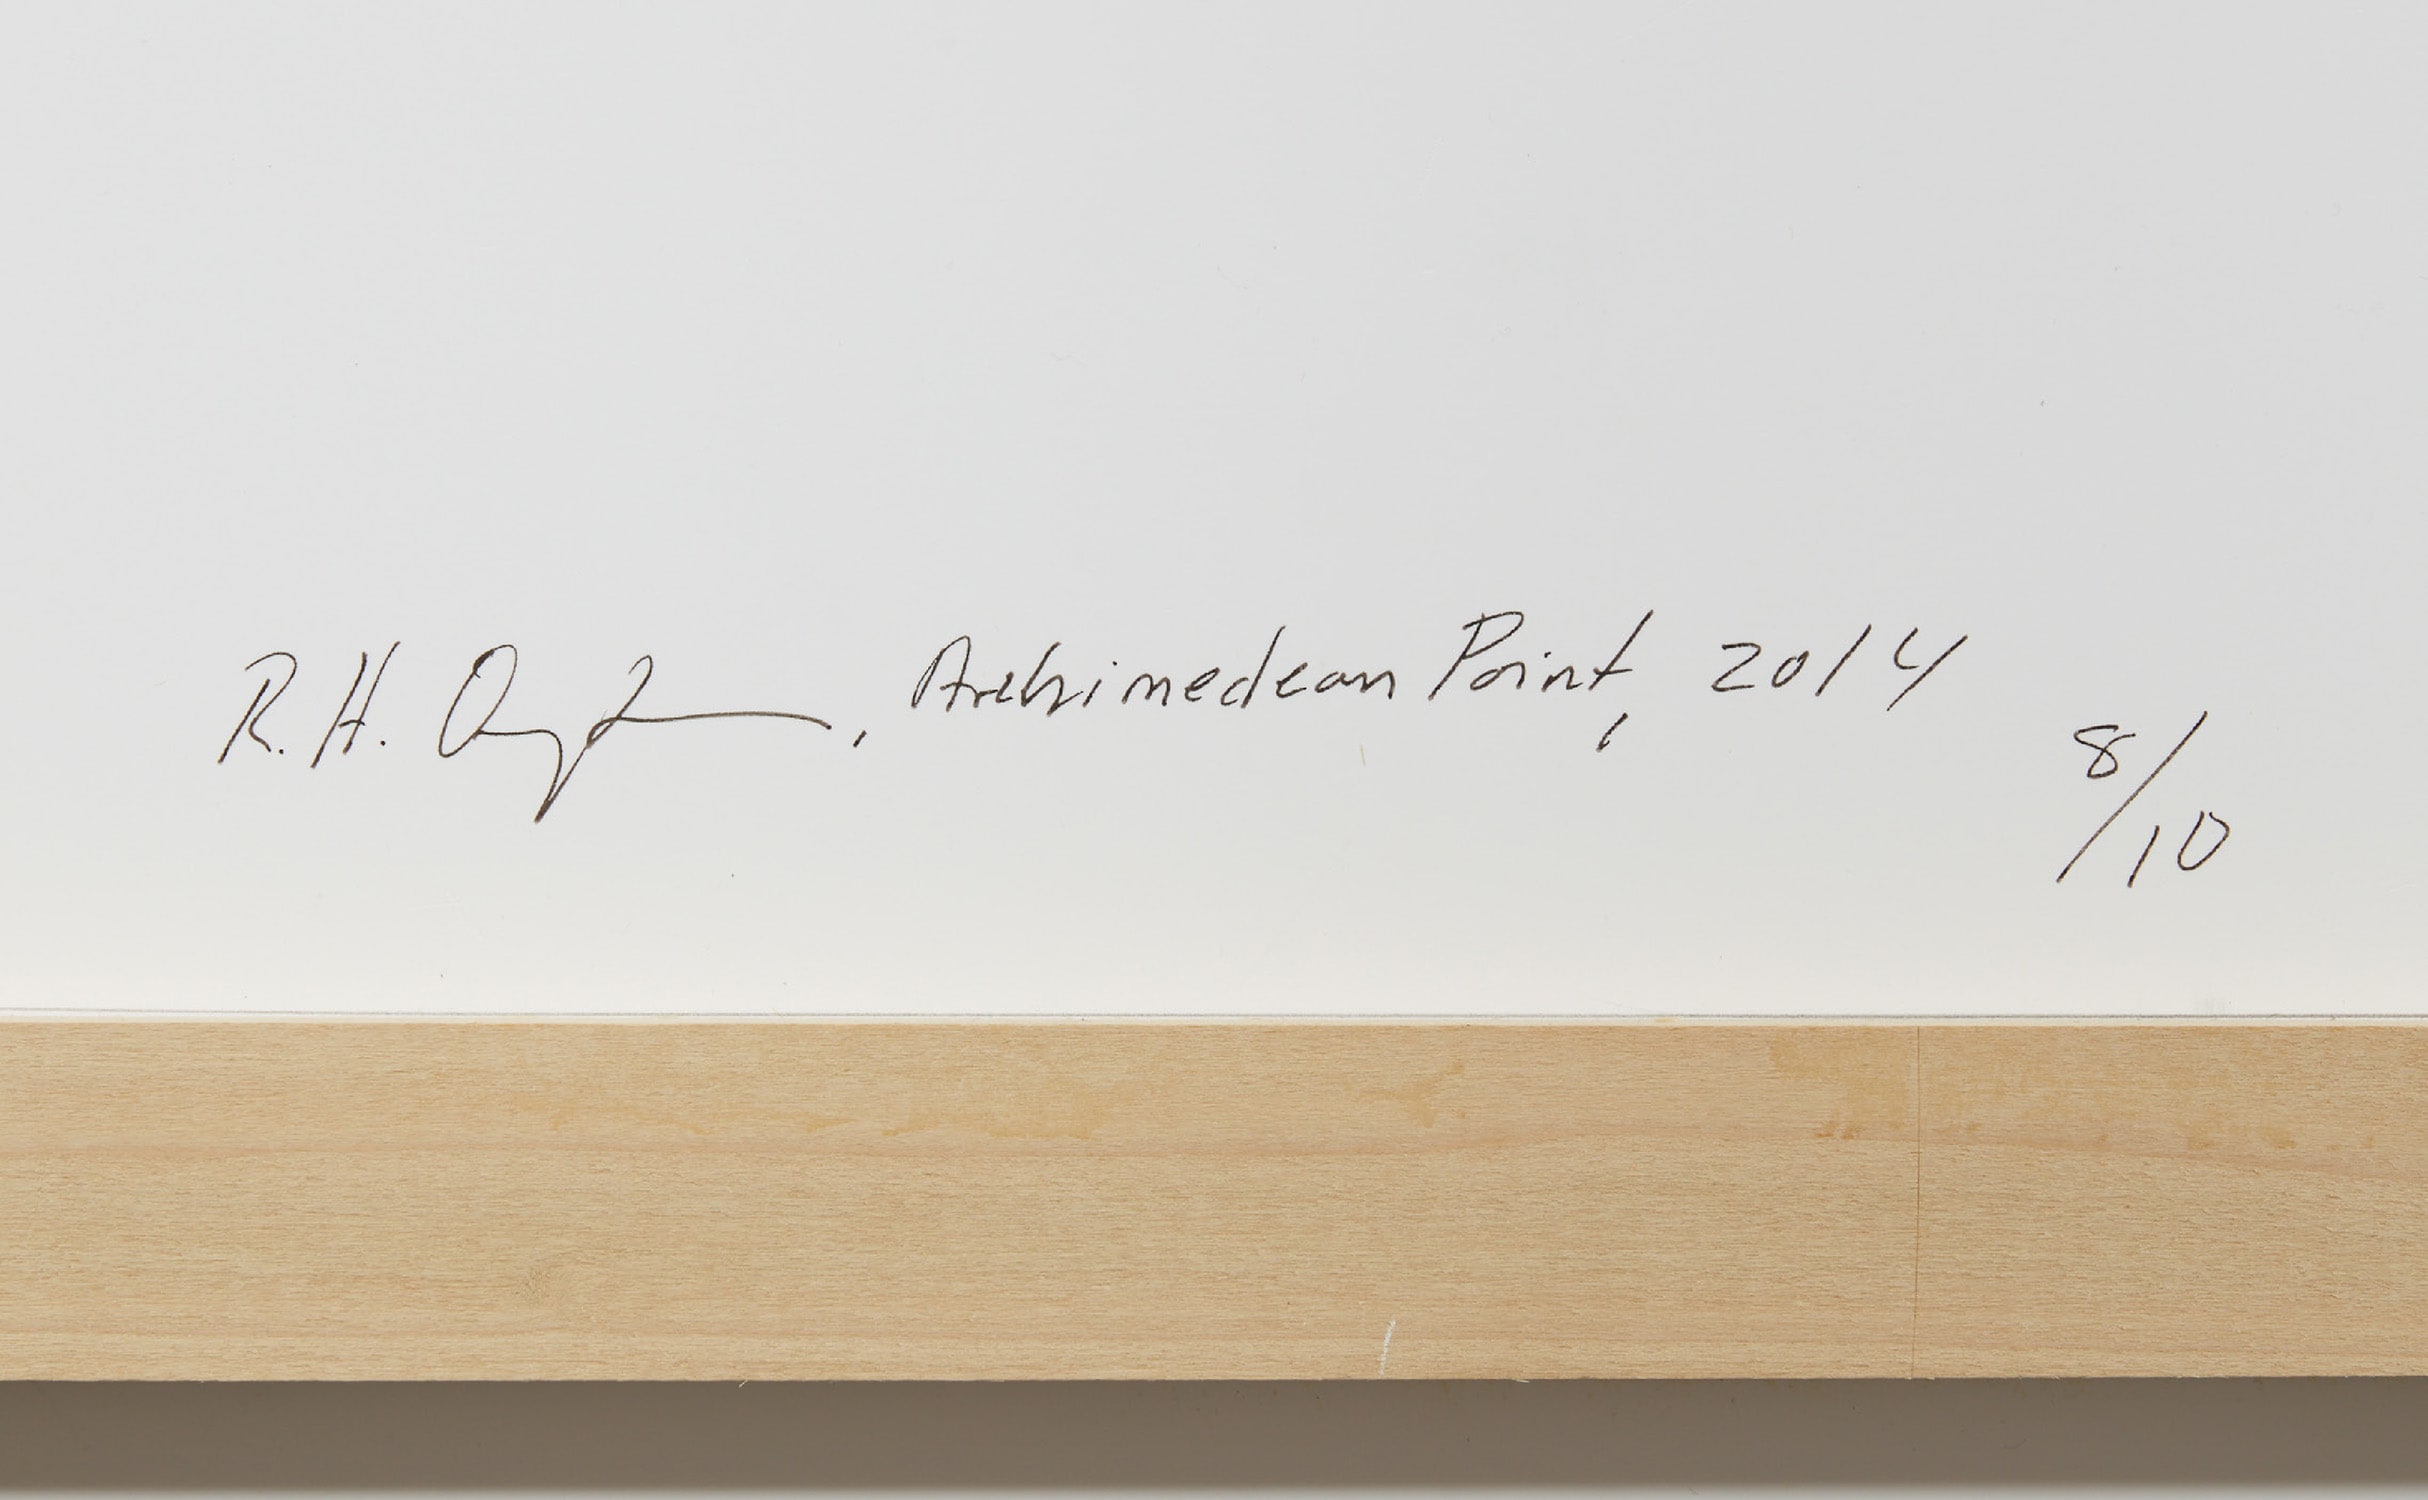 R. H. Quaytman, Archimedean Point, 2014
8/10